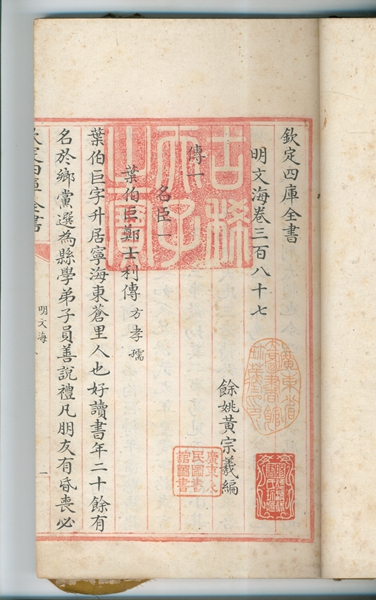 欽定四庫全書
明文海卷三百八十七
餘姚黃宗羲編
傳一
名臣一
葉伯巨鄭士利傳 方孝孺
葉伯巨字升居寧海東蒼里人也好讀書年二十餘有
名於鄉黨選為縣學弟子員善說禮凡朋友有昏喪必
欽定四庫全書
明文海
一
古稀天子之寶
廣東人民圖書館圖書